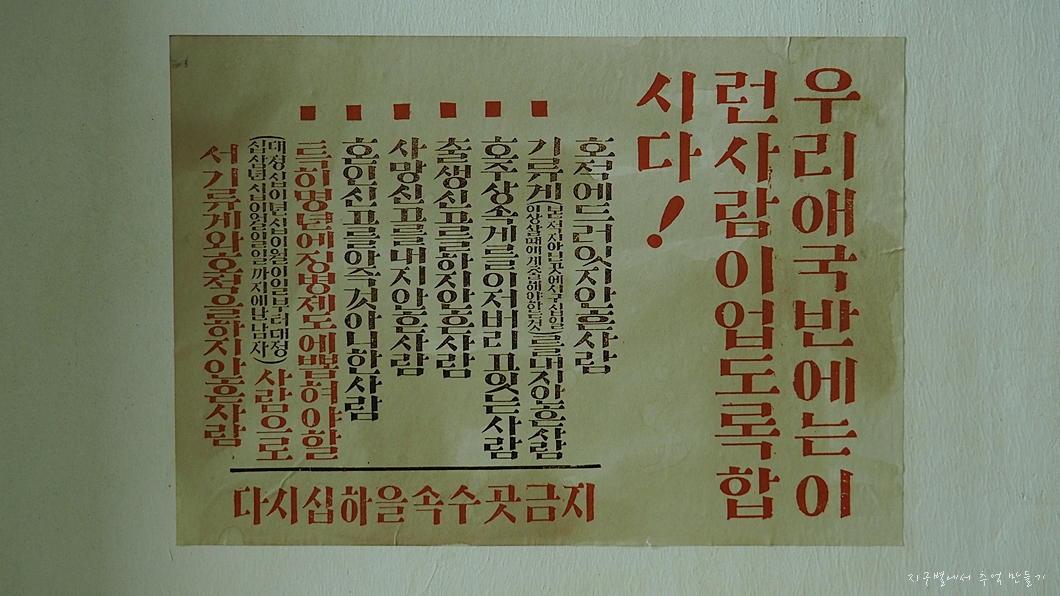 우리애국반에는이
런사람이업도록합
시다!
호적에드러잇지안흔사람
기류계(본적지아닌곳에서구십일이상살때에계출해야하는것)를내지안흔사람
호주상속계를이저버리고잇는사람
출생신고를하지안흔사람
사망신고를내지안흔사람
혼인신고를안즉것아니한사람
특히명년에징병제도에뽑혀야할
(대정십이년십이월이일부터대정십삼년십이월일일까지에난남자)사람으로
서기류계와호적을하지안흔사람
지금곳수속을하십시다
지구별에서 추억 만들기